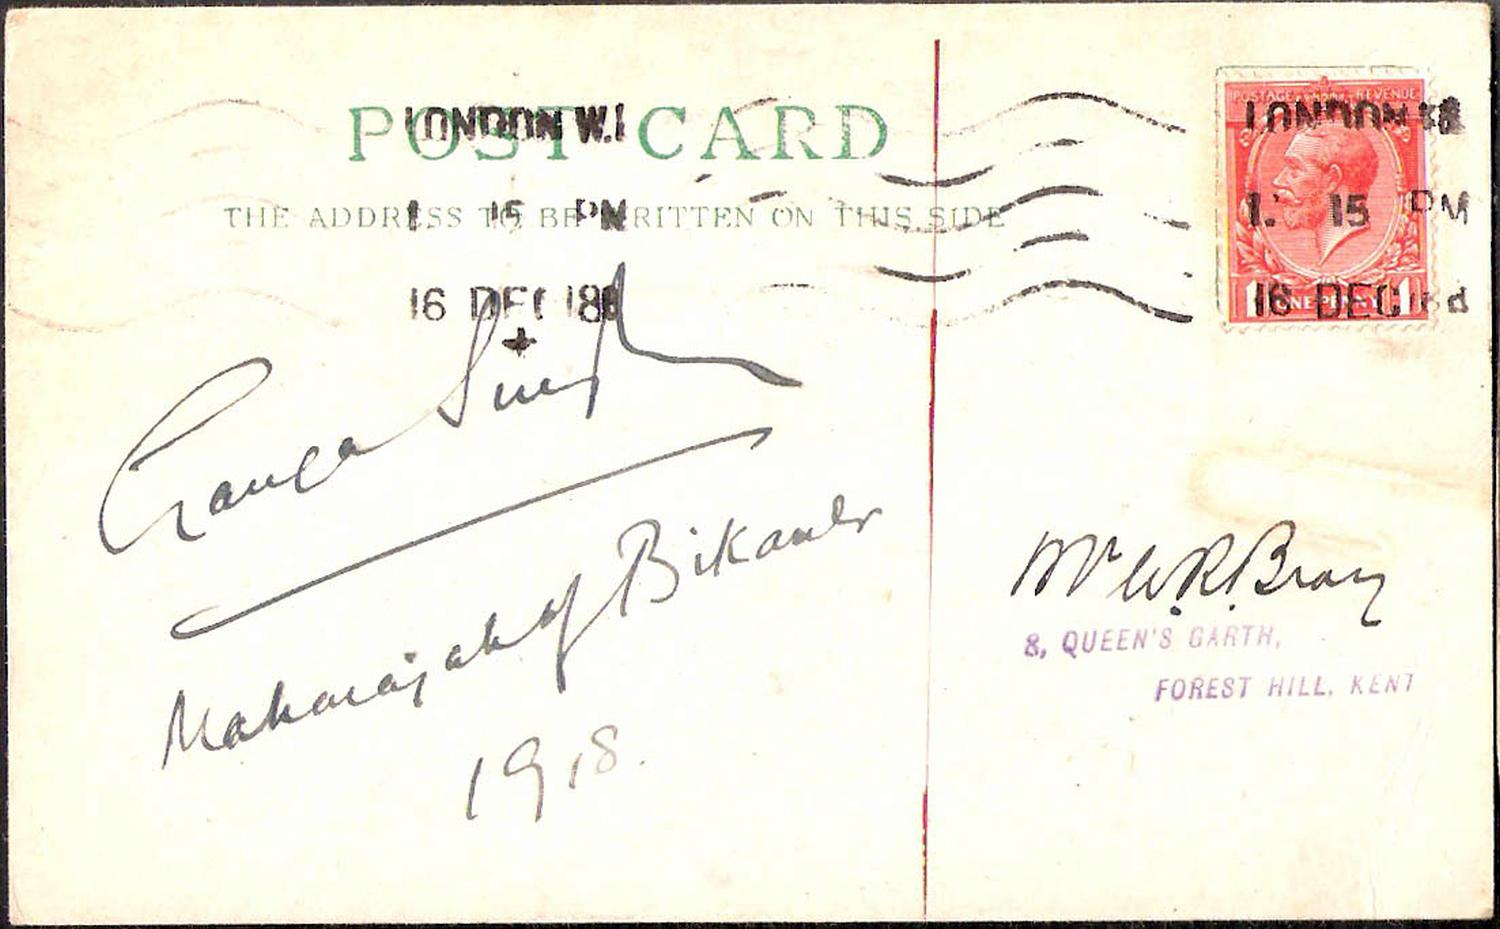 POST CARD
THE ADDRESS TO BE WRITTEN ON THIS SIDE
LONDON W.1
1. 15 PM
16 DEC 18
+
POSTAGE REVENUE
LONDON
1. 15 PM
16 DEC 18
1 ONE PENNY 1
Ganga Singh
Maharajah of Bikaner
1918.
Mr W.R. Bray
8, QUEEN'S GARTH,
FOREST HILL, KENT